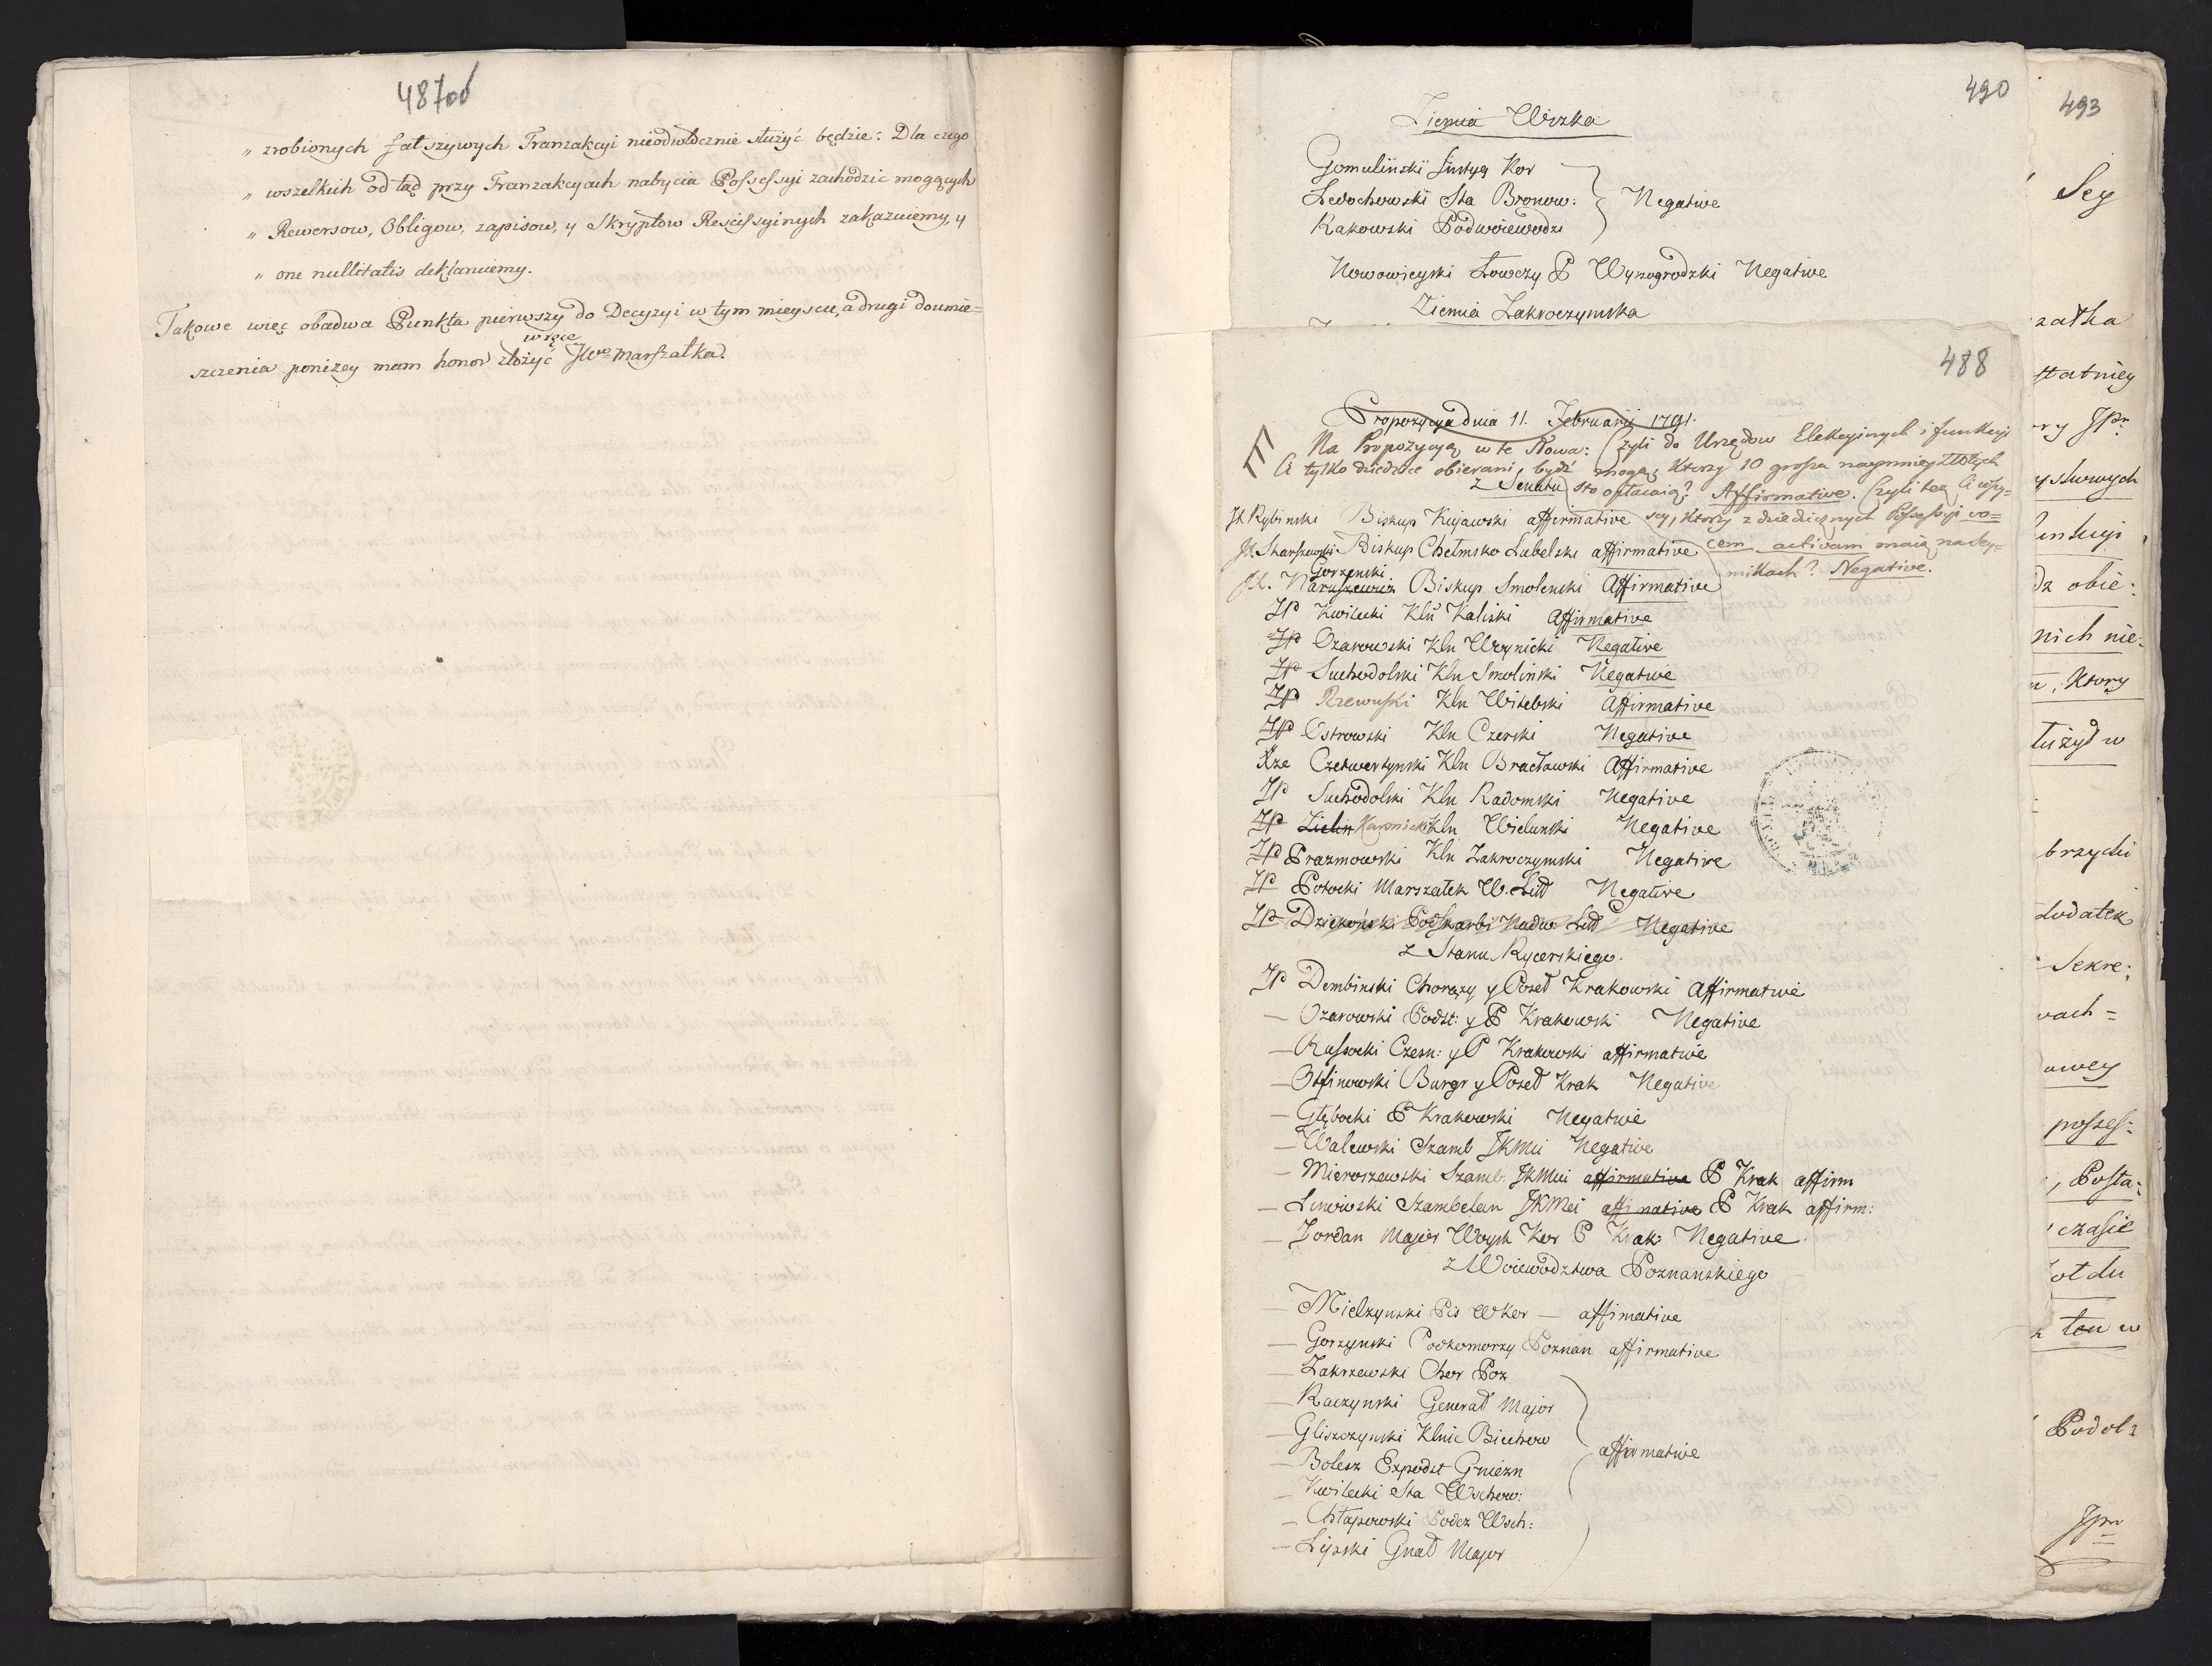 487od
„ zrobionych fałszywych Tranzakcyi nieodwłocznie służyć będzie: Dla czego
„ wszelkich od tąd przy Tranzakcyach nabycia Possessyi zachodzić mogących
„ Rewersow, Obligow, zapisow, y Skryptow Rescissyinych zakazuiemy, y
„ one nullitatis deklaruiemy.
Takowe więc obadwa Punkta pierwszy do Decyzyi w tym mieyscu, a drugi doumie=
szczenia poniżey mam honor złożyć w ręce JWo Marszałka.
490
Ziemia Wizka
Gomuliński Instyg Kor
Ledochowski Sta Bronow: Negative
Rakowski Podwoiewodzi
Nowowieyski Łowczy P Wyszogrodzki Negative
Ziemia Zakroczymska
488
Propozycya dnia 11. Februarii 1791.
Na Propozycyą w te słowa: Czyli do Urzędow Elekcyinych i funkcyi
Ci tylko dziedzice obierani, bydź mogą, ktorzy 10 grosza naymniey Złotych
sto opłacaią? Affirmative. Czyli też Ci wszy=
scy, ktorzy z dziedzicznych Possessyi vo=
cem activam maią na Sey=
mikach? Negative.
z Senatu
JX Rybinski Biskup Kujawski affirmative
JX. Skarszewski Biskup Chełmsko Lubelski affirmative
JX. Naruszewicz Gorzenski Biskup Smolenski Affirmative
JP Kwilecki Kln Kaliski Affirmative
JP Ozarowski Kln Woynicki Negative
JP Suchodolski Kln Smolinski Negative
JP Rzewuski Kln Witebski Affirmative
JP Ostrowski Kln Czerski Negative
Xze Czetwertynski Kln Bracławski Affirmative
JP Suchodolski Kln Radomski Negative
JP Zielin Karsnicki Kln Wielunski Negative
JP Prazmowski Kln Zakroczymski Negative
JP Potocki Marszałek W. Litt Negative
JP Dziekoński Podskarbi Nadw: Litt Negative
z Stanu Rycerskiego.
JP Dembinski Chorąży y Poseł Krakowski Affirmative
— Ozarowski Podst: y P Krakowski Negative
— Russocki Czesn: y P Krakowski affirmative
— Otfinowski Burgr y Poseł Krak Negative
— Głębocki P Krakowski Negative
— Walewski Szamb JKMci Negative
— Mieroszewski Szamb. JKMci affirmative P Krak affirm
— Linowski Szambelan JKMci affirmative P Krak affirm:
— Jordan Major Woysk Kor P Krak: Negative.
z Woiewodztwa Poznanskiego
— Mielzynski Pis WKor — affirmative
— Gorzynski Podkomorzy Poznan affirmative
— Zakrzewski Chor Poz
— Raczynski Generał Major
— Gliszczynski Klnic Biechow
affirmative
— Bolesz Expodst Gniezn
— Kwilecki Sta Wschow:
— Chłapowski Podcz Wsch:
— Lipski Gnał Major
493
Sey
zatka
statniey
ry JPn
dz obie:
nich nie:
, ktory
tużył w
brzydzi
dodatek
Sekre:
wach =
owey
posses:
, Posta:
czasie
ten w
Podol:
JPn